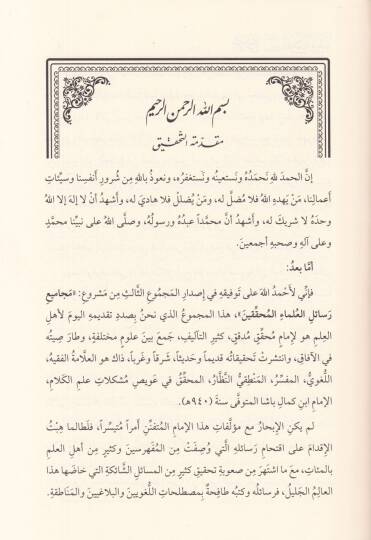 بسم الله الرحمن الرحيم
مقدمة التحقيق
إنَّ الحمدَ للهِ نَحمَدُهُ ونَستعينُه ونَستغفرُه، ونعوذُ باللهِ مِن شُرورِ أنفسِنا وسيِّئاتِ
أعمالِنا، مَنْ يَهدِهِ اللهُ فلا مُضلَّ له، ومَنْ يُضلِلْ فلا هاديَ له، وأشهدُ أنْ لا إلهَ إلا اللهُ
وحدَهُ لا شريكَ له، وأشهدُ أنَّ محمَّداً عبدُهُ ورسولُهُ، وصلَّى اللهُ على نبيِّنا محمَّدٍ
وعلى آلهِ وصحبِهِ أجمعينَ.
أمَّا بعدُ:
فإنِّي لأَحمَدُ اللهَ على تَوفيقِهِ في إصدارِ المَجمُوعِ الثَّالثِ مِن مَشروعِ: «مَجاميعِ
رَسائلِ العُلَماءِ المُحقِّقينَ»، هذا المجموعُ الذي نحنُ بصددِ تقديمِهِ اليومَ لأهلِ
العِلمِ هو لإمامٍ مُحقِّقٍ مُدقِّقٍ، كثيرِ التآليفِ، جَمعَ بينَ علومٍ مختلفةٍ، وطارَ صِيتُه
في الآفاقِ، وانتشرتْ تَحقيقاتُه قديماً وحديثاً، شرقاً وغَرباً، ذاك هو العلَّامةُ الفقيهُ،
اللُّغويُّ، المفسِّرُ، المَنْطِقيُّ، النَّظَّارُ، المحقِّقُ في عَويصِ مُشكلاتِ علمِ الكَلامِ،
الإمامِ ابنِ كمال باشا المتوفَّى سنةَ (٩٤٠هـ).
لم يكنِ الإبحارُ معَ مؤلَّفاتِ هذا الإمامِ المُتفنِّنِ أمراً مُتيسِّراً، فلَطالما هِبْتُ
الإقدامَ على اقتحامِ رسائلِهِ الَّتي وُصِفَتْ مِن المُفَهرسين وكثيرٍ مِن أهلِ العلمِ
بالمئاتِ، معَ ما اشتَهرَ مِن صعوبةِ تحقيقِ كثيرٍ مِن المسائلِ الشَّائكةِ التي خاضَها هذا
العالِمُ الجَليلُ، فرسائلُه وكتبُه طافحةٌ بمصطلحاتِ اللُّغويينَ والبلاغيينَ والمَناطقةِ.